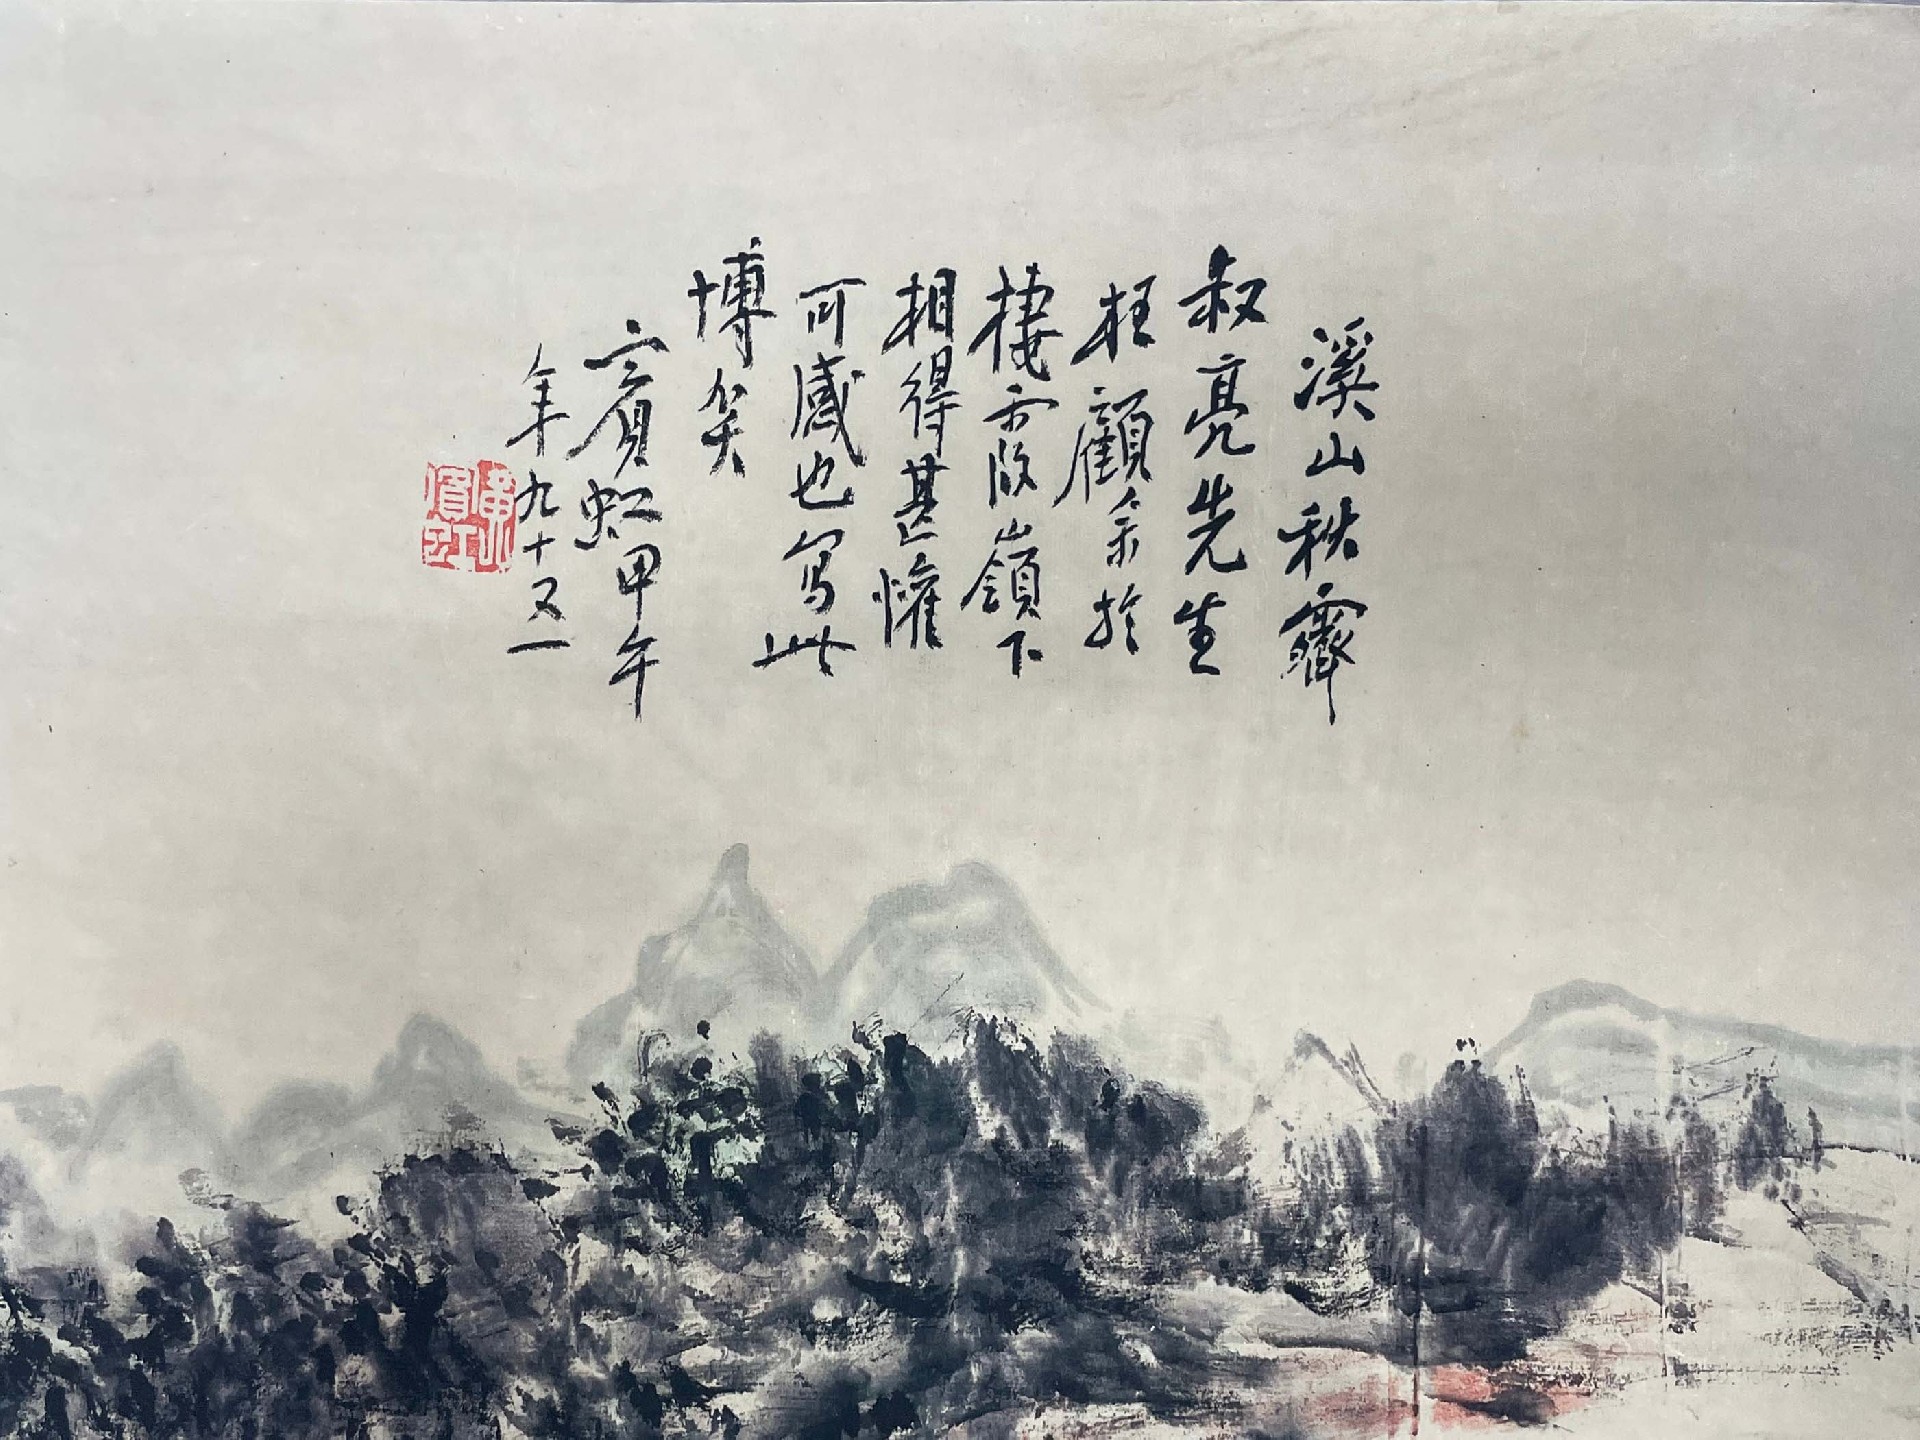 溪山秋霽
叔亮先生
枉顧余於
棲霞嶺下
相得甚懽
可感也寫此
博笑
賓虹甲午
年九十又一
黃賓虹